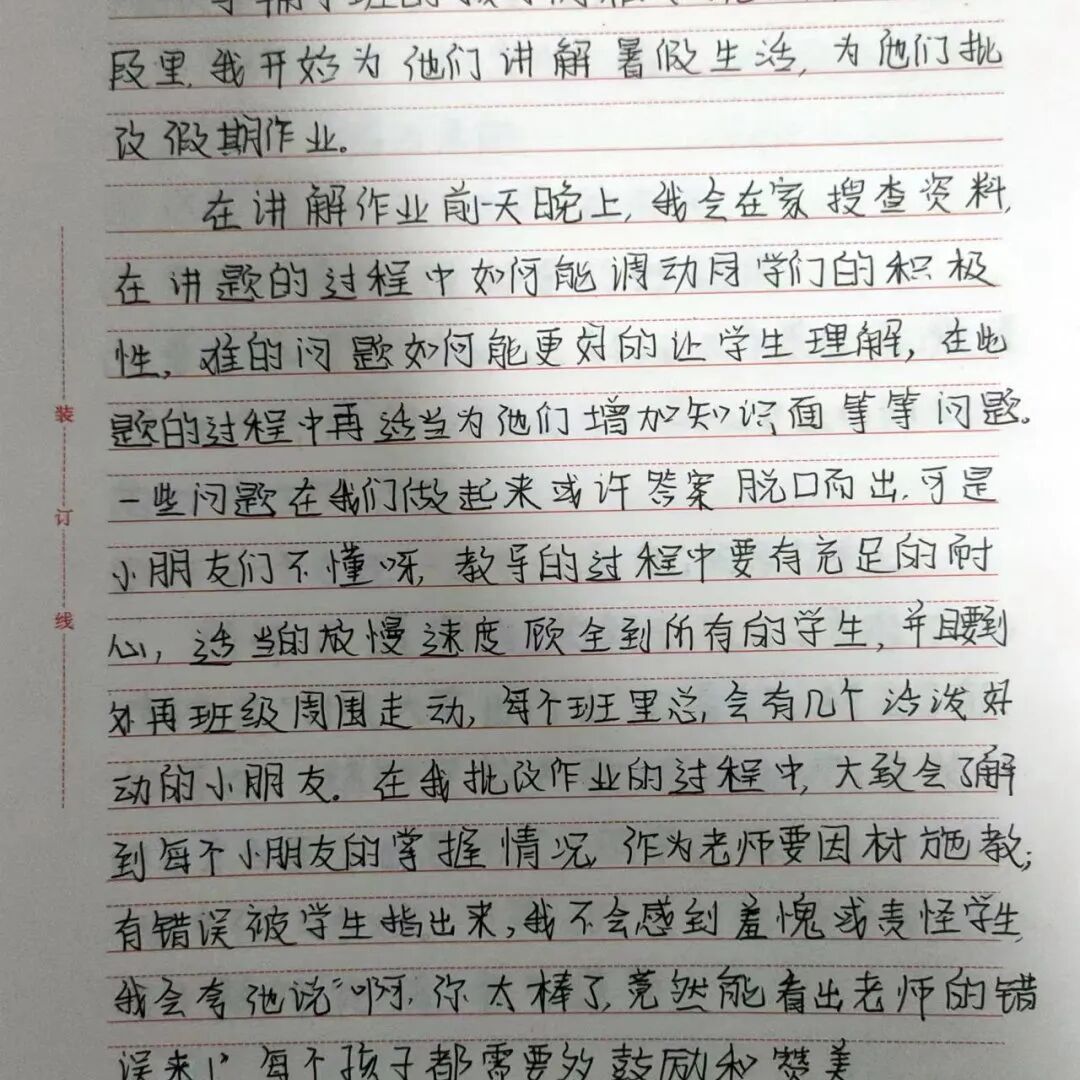 段里,我开始为他们讲解暑假生活,为他们批
改假期作业。
在讲解作业前一天晚上,我会在家搜查资料,
在讲题的过程中如何能调动同学们的积极
性,难的问题如何能更好的让学生理解,在此
题的过程中再适当为他们增加知识面等等问题。
一些问题在我们做起来或许答案脱口而出,可是
小朋友们不懂呀,教导的过程中要有充足的耐
心,适当的放慢速度顾全到所有的学生,并且要到
外再班级周围走动,每个班里总会有几个活泼好
动的小朋友。在我批改作业的过程中,大致会了解
到每个小朋友的掌握情况,作为老师要因材施教;
有错误被学生指出来,我不会感到羞愧或责怪学生,
我会夸他说“啊,你太棒了,竟然能看出老师的错
误来!”每个孩子都需要的鼓励和赞美
装
订
线